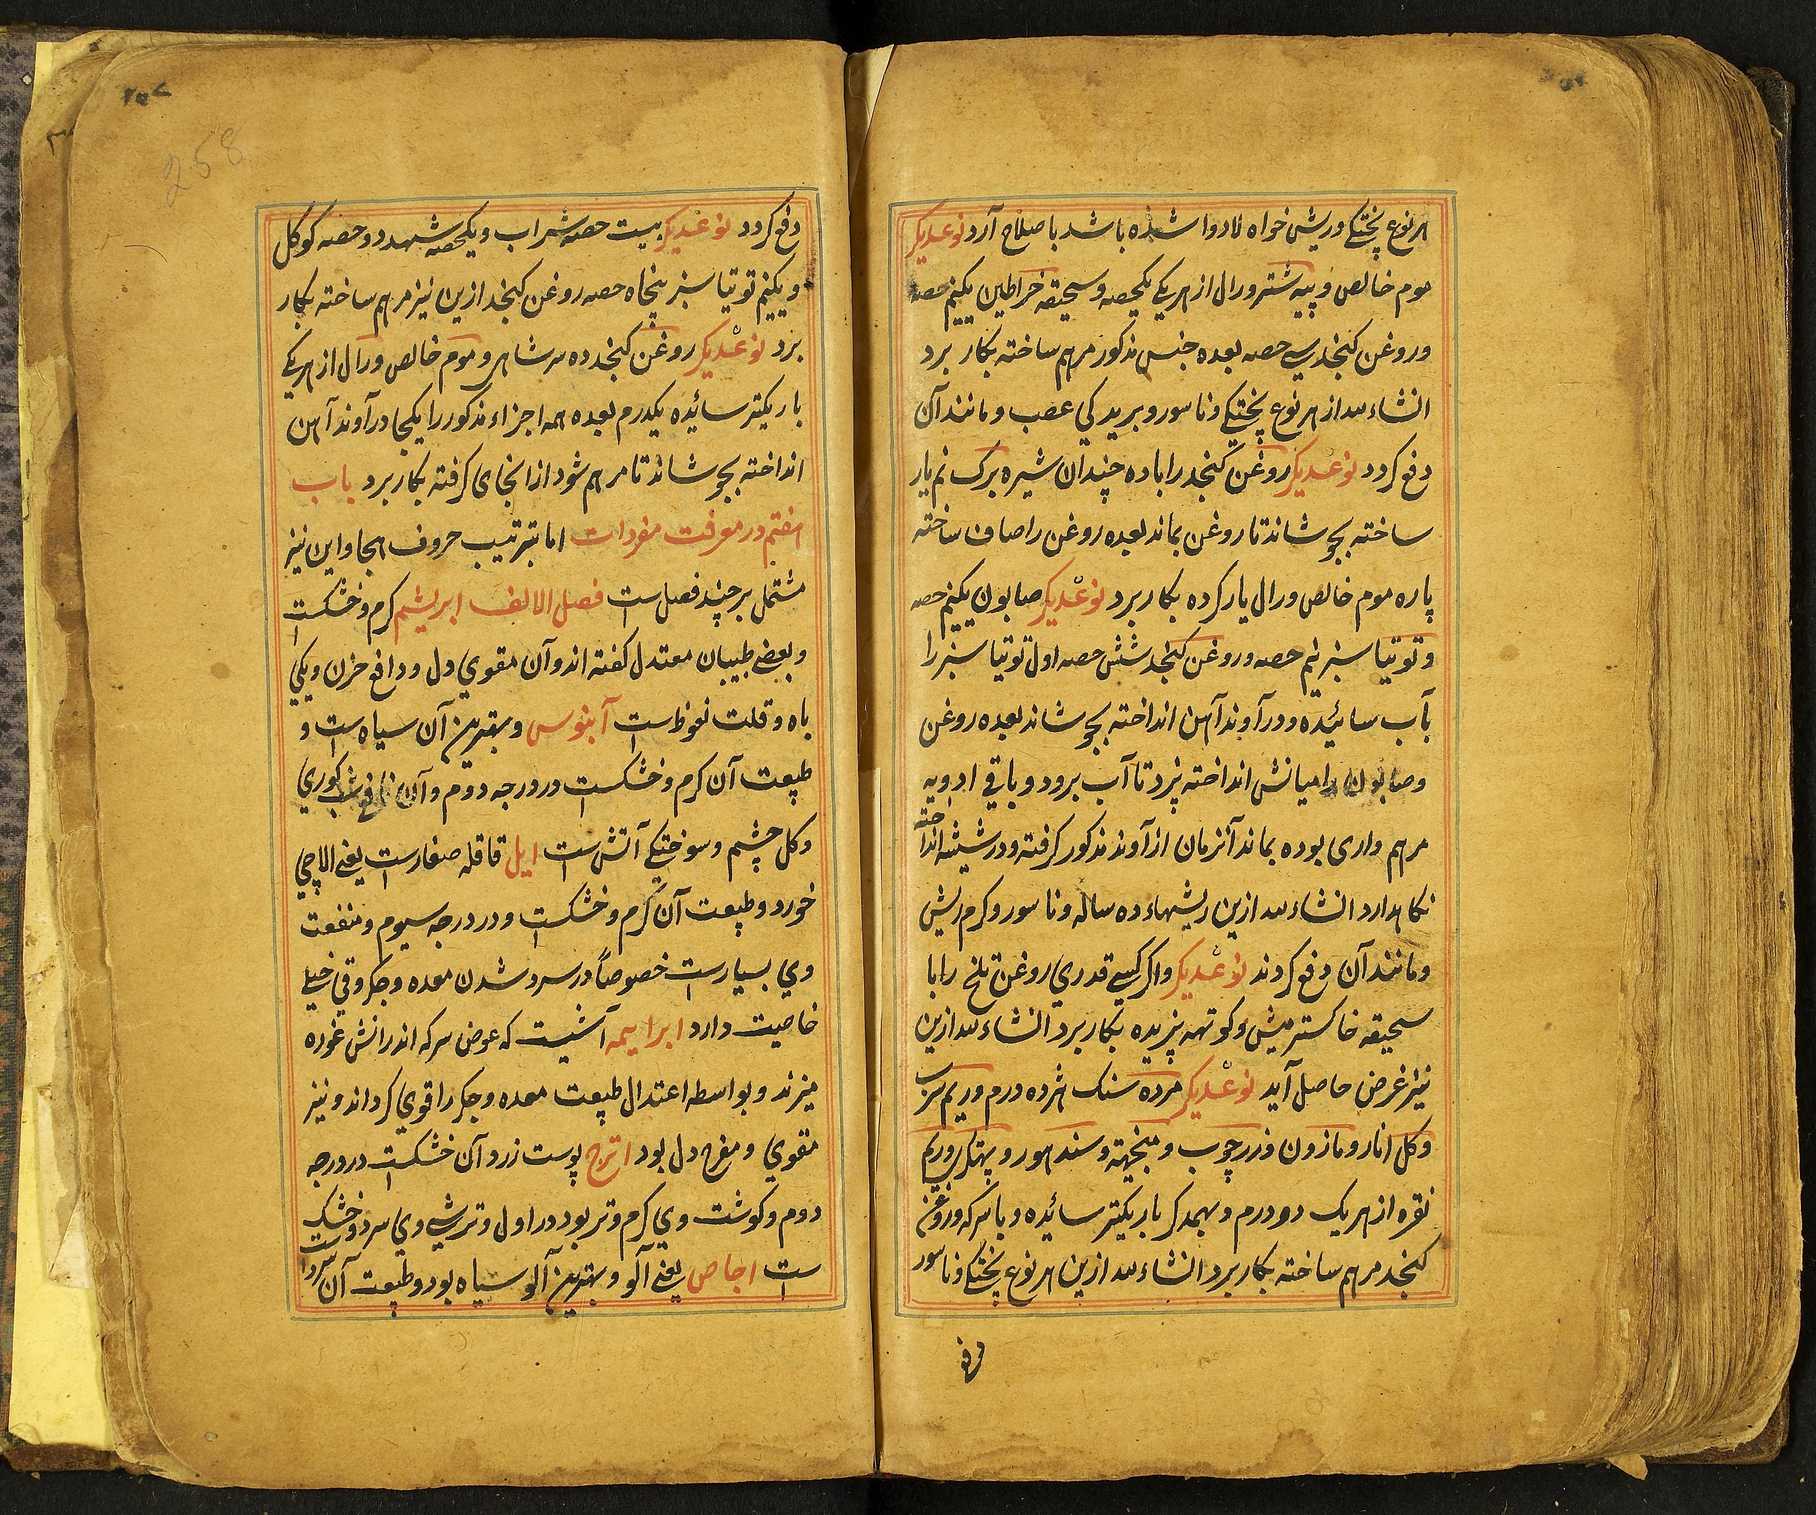 هر نوع پختگی و ریش خواه لادوا شده باشد باصلاح آرد نوعدیگر
موم خالص و پیه شتر و رال از هر یکی یکحصه و سحیقه خراطین یکنیم حصه
و روغن کنجد سی حصه بعده جنس مذکور مرهم ساخته بکار برد
انشاءالله از هر نوع پختگی و ناسور و بریدگی عصب و مانند آن
دفع گردد نوعدیگر روغن کنجد را باده چندان شیره برگ نم یار
ساخته بجوشاند تا روغن بماند بعده روغن را صاف ساخته
پاره موم خالص و رال یار کرده بکار برد نوعدیگر صابون یکنیم حصه
و توتیا سبز نیم حصه و روغن کنجد شش حصه اول توتیا سبز را
بآب سائیده و در آوند آهن انداخته بجوشاند بعده روغن
و صابون را میانش انداخته پزد تا آب برود و باقی ادویه
مرهم واری بوده بماند آنزمان از آوند مذکور گرفته و در شیشه انداخته
نگاهدارد انشاءالله ازین ریشهاء ده ساله و ناسور و کرم ریش
و مانند آن دفع گردند نوعدیگر و اگر کسی قدری روغن تلخ را با
سحیقه خاکستر میش و کوتهه پزیده بکار برد انشاءالله ازین
نیز غرض حاصل آید نوعدیگر مرده سنگ هژده درم و ریم سرب
و کل انار و مازون و زرچوب و منجیهته و سندهور و پهتکری و ریم
نقره از هر یک دو درم و بهمدگر باریکتر سائیده و با سرکه و روغن
کنجد مرهم ساخته بکار برد انشاءالله ازین هر نوع پختگی و ناسور
دفع
۲۵۷
258
دفع گردد نوعدیگر بیست حصه شراب و یکحصه شهد دو حصه گوگل
و یکنیم توتیا سبز پنجاه حصه روغن کنجد ازین نیز مرهم ساخته بکار
برد نوعدیگر روغن کنجد ده سر شاهی و موم خالص و رال از هر یکی
باریکتر سائیده یکدرم بعده همه اجزاء مذکور را یکجا در آوند آهن
انداخته بجوشاند تا مرهم شود از انجای گرفته بکار برد باب
هفتم در معرفت مفردات اما بترتیب حروف الهجا و این نیز
مشتمل بر چند فصل است فصل الالف ابریشم گرم و خشکست
و بعضی طبیبان معتدل گفته اند و آن مقوی دل و دافع حزن و یکی
باه و قلت نعوظ است آبنوس و بهترین آن سیاه است و
طبیعت آن گرم و خشکست در درجه دوم و آن نافع شب کوری
و کل چشم و سوختگی آتش است ایل قاقله صغار است یعنی الاچی
خورد و طبیعت آن گرم و خشکست و در درجه سیوم و منفعت
وی بسیار است خصوصاً در سرد شدن معده و جگر و قی خیلی
خاصیت دارد ابراهیمه آشیست که عوض سرکه اندرانش غوره
میزند و بواسطه اعتدال طبیعت معده و جگر را قوی گرداند و نیز
مقوی و مفرح دل بود اترج پوست زرد آن خشکست در درجه
دوم و گوشت وی گرم و تر بود در اول و ترشی وی سرد و خشک
ست اجاص یعنی آلو و بهترین آلو سیاه بود و طبیعت آن سرد است